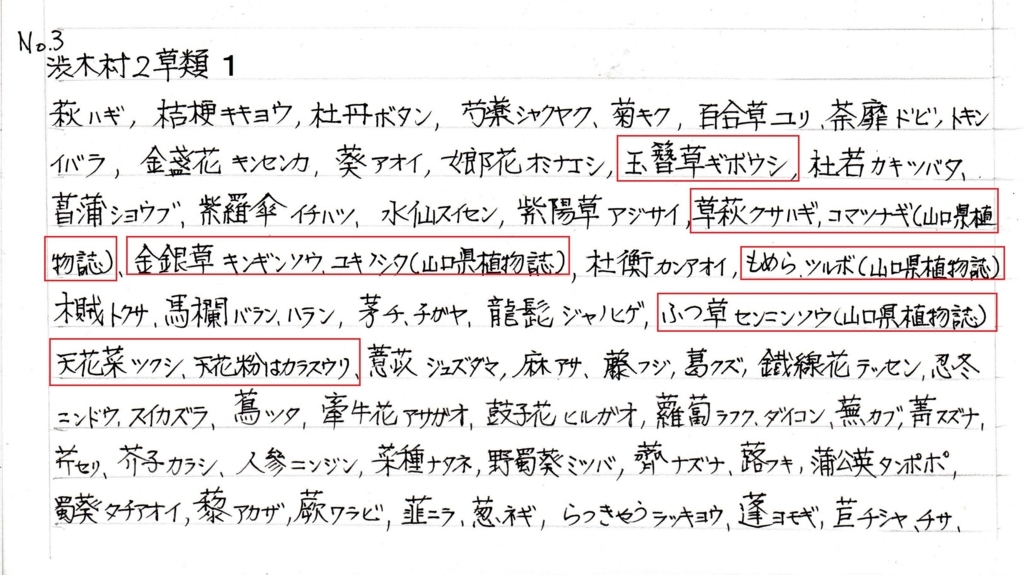 No.3
渋木村2草類 1
萩ハギ, 桔梗キキヨウ, 杜丹ボタン, 芍薬シャクヤク、菊キク, 百合草ユリ、荼靡ドビ,トキン
イバラ, 金盞花キンセンカ, 葵アオイ, 女郎花オミナエシ, 玉簪草ギボウシ, 杜若カキツバタ、
菖蒲ショウブ、紫羅傘イチハツ、水仙スイセン, 紫陽草アジサイ,草萩クサハギ,コマツナギ(山口県植
物誌)、金銀草キンギンソウ,ユキノシタ(山口県植物誌), 杜衡カンアオイ, もめら、ツルボ(山口県植物誌)
木賊トクサ、馬欄バラン、ハラン, 茅チ、チガヤ、龍髭ジャノヒゲ, ふつ草センニンソウ(山口県植物誌)
天花菜ツクシ、天花粉はカラスウリ、薏苡ジュズダマ, 麻アサ、藤フジ, 葛クズ, 鐵線花テッセン,忍冬
ニンドウ,スイカズラ、蔦ツタ, 牽牛花アサガオ, 鼓子花ヒルガオ,蘿蔔ラフク,ダイコン,蕪カブ,菁スズナ,
芹セリ、芥子カラシ、人參ニンジン, 菜種ナタネ,野蜀葵ミツバ, 薺ナズナ、蕗フキ, 蒲公英タンポポ,
蜀葵タチアオイ, 藜アカザ,蕨ワラビ, 韮ニラ、葱ネギ, らつきやうラッキョウ, 蓬ヨモギ, 苣チシャ、チサ、